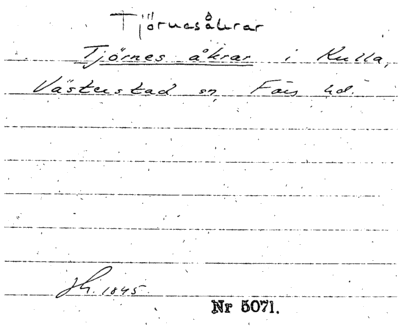 Tjörnesåkrar
Tjörnes åkrar i Kulla,
Västerstad sn, Färs hd.
1845
Nr 5071.